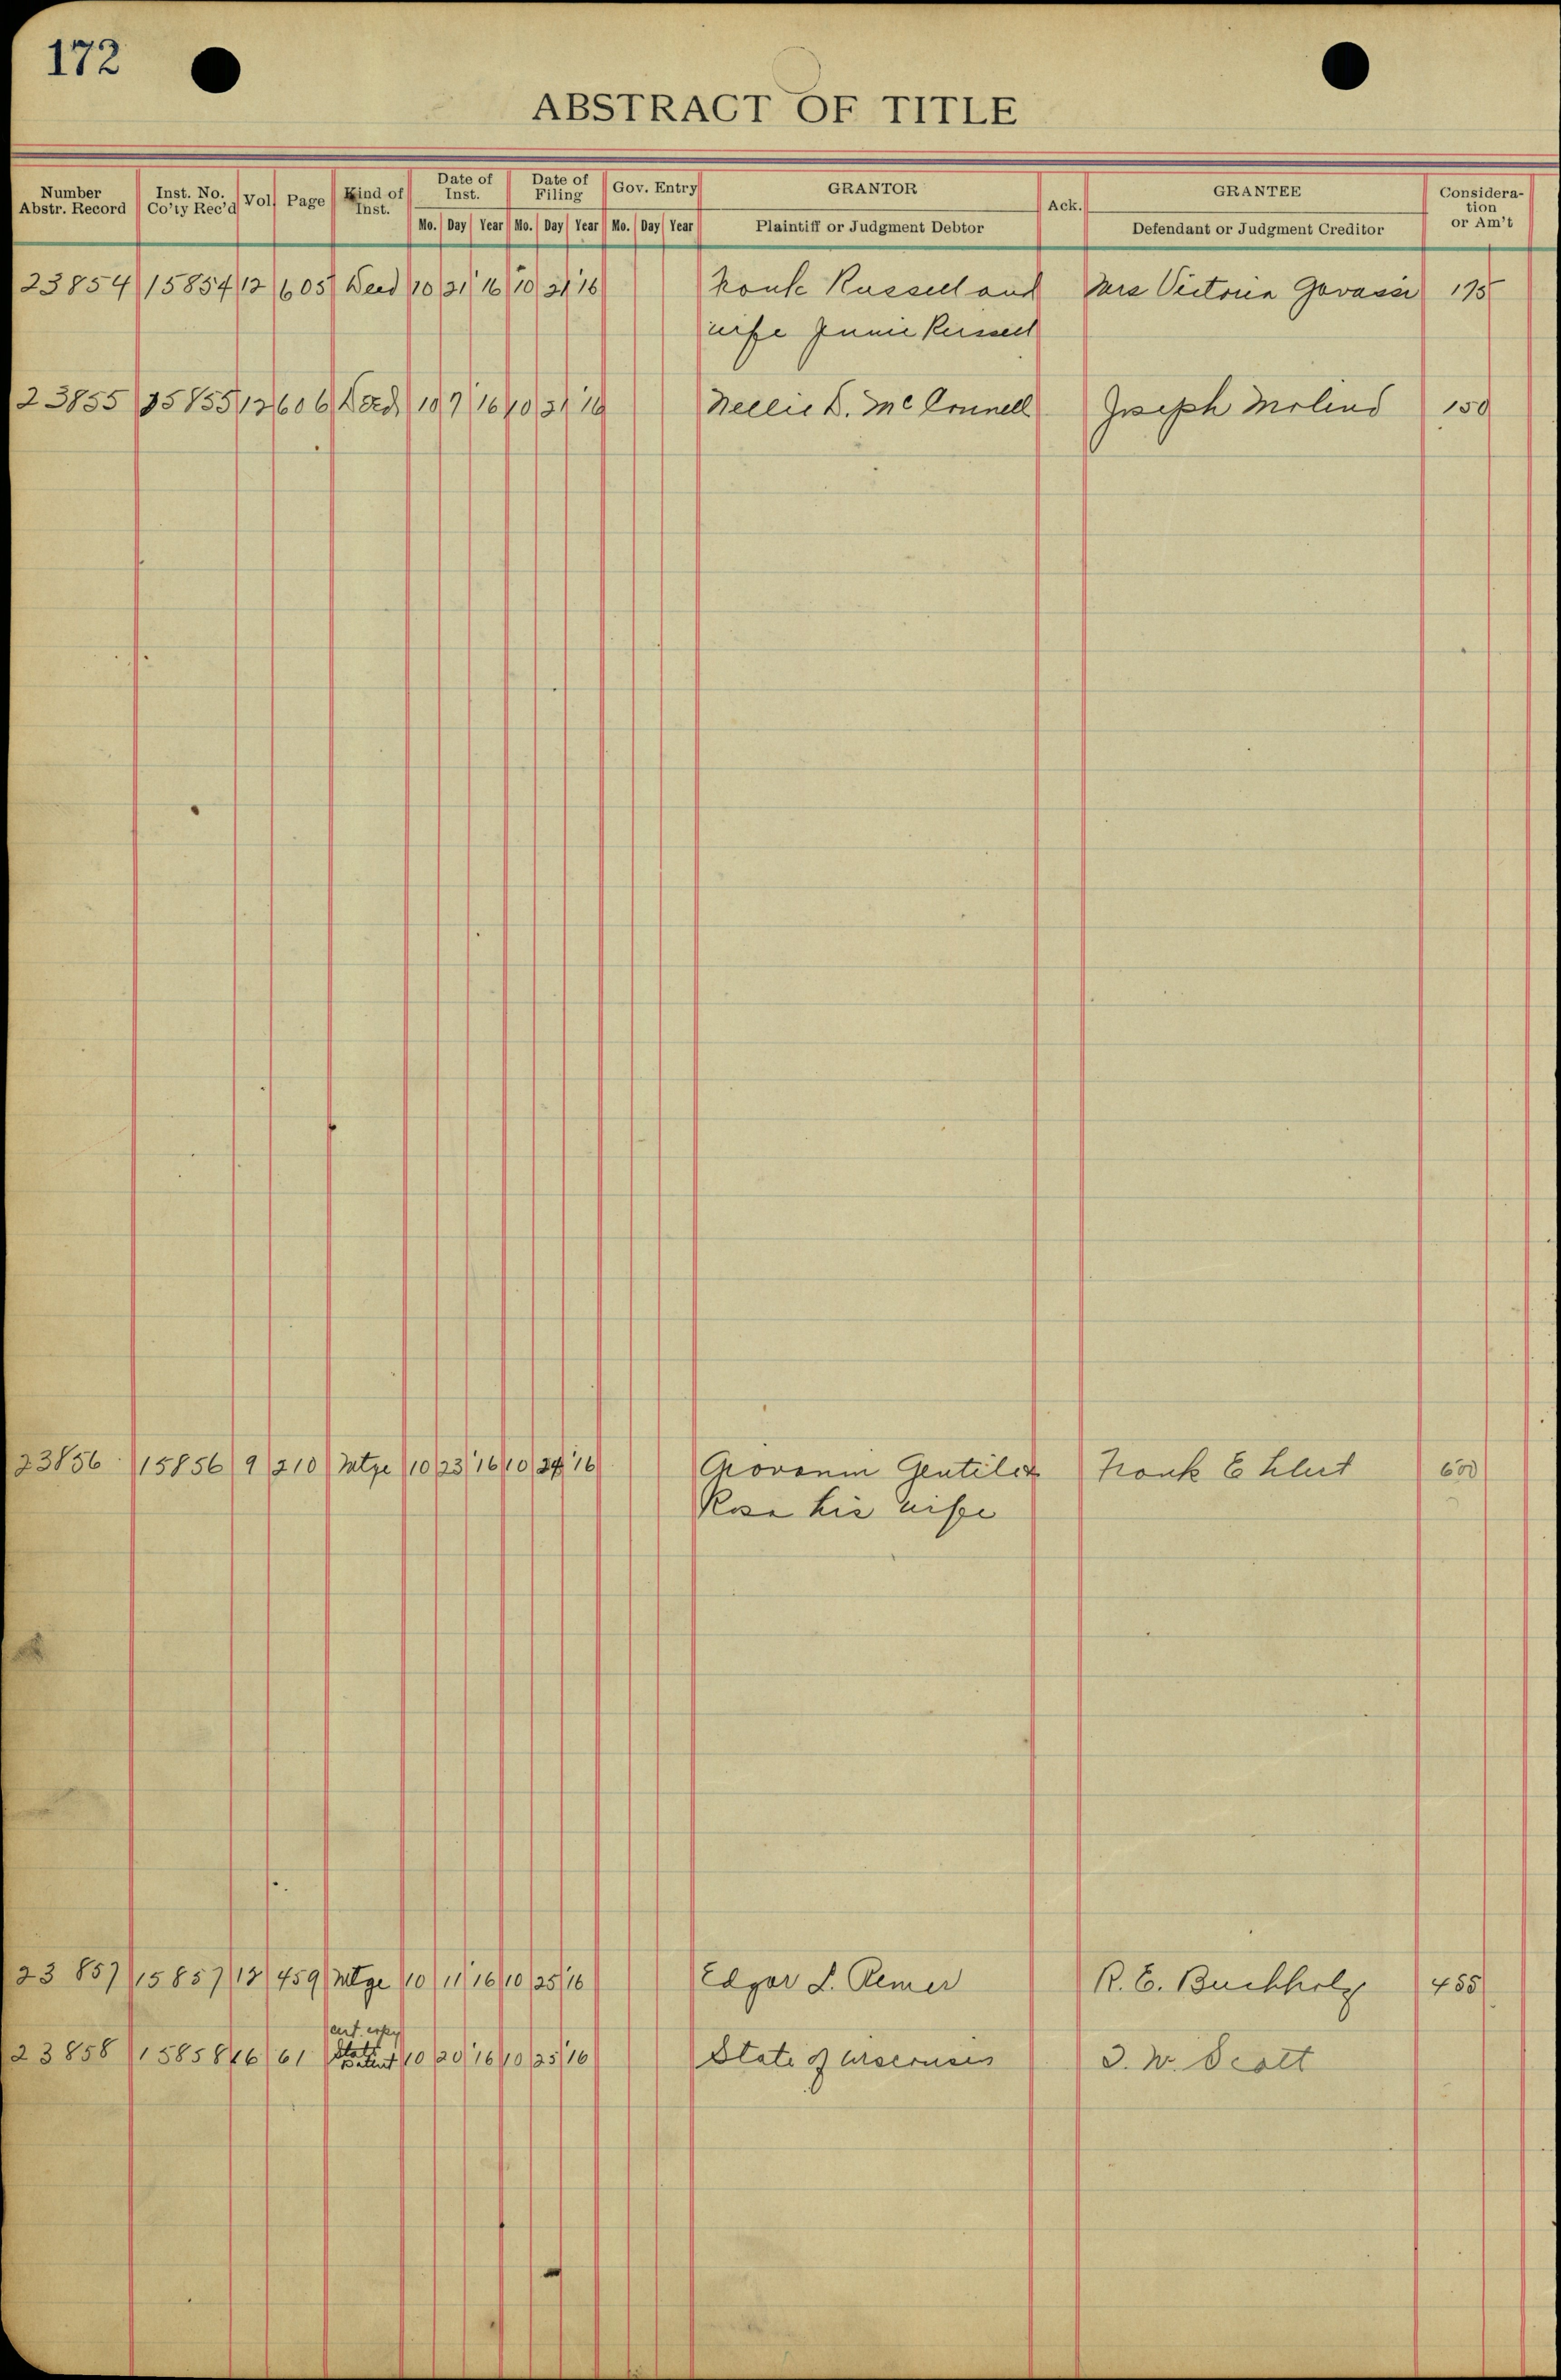 172
ABSTRACT OF TITLE
Number Abstr. Record Inst. No. Co'ty Rec'd Vol. Page Kind of Inst. Date of Inst. Date of Filing Gov. Entry GRANTOR Ack. GRANTEE Considera-tion or Am't
Mo. Day Year Mo. Day Year Mo. Day Year Plaintiff or Judgment Debtor Defendant or Judgment Creditor
23854 15854 12 605 Deed 10 21 '16 10 21 '16 Frank Russell and Mrs Victoria Govassi 175
wife Jennie Russell
23855 15855 12 606 Deed 10 7 '16 10 21 '16 Nellie D. McConnell Joseph Molino 150
23856 15856 9 210 Mtge 10 23 '16 10 24 '16 Giovanni Gentile & Frank E 600
Rosa his wife
23857 15857 18 459 Mtge 10 11 '16 10 25 '16 Edgar L. Remer R. E. Buchholz 455
cert. copy
23858 15858 16 61 State Patent 10 20 '16 10 25 '16 State of Wisconsin I. W. Scott